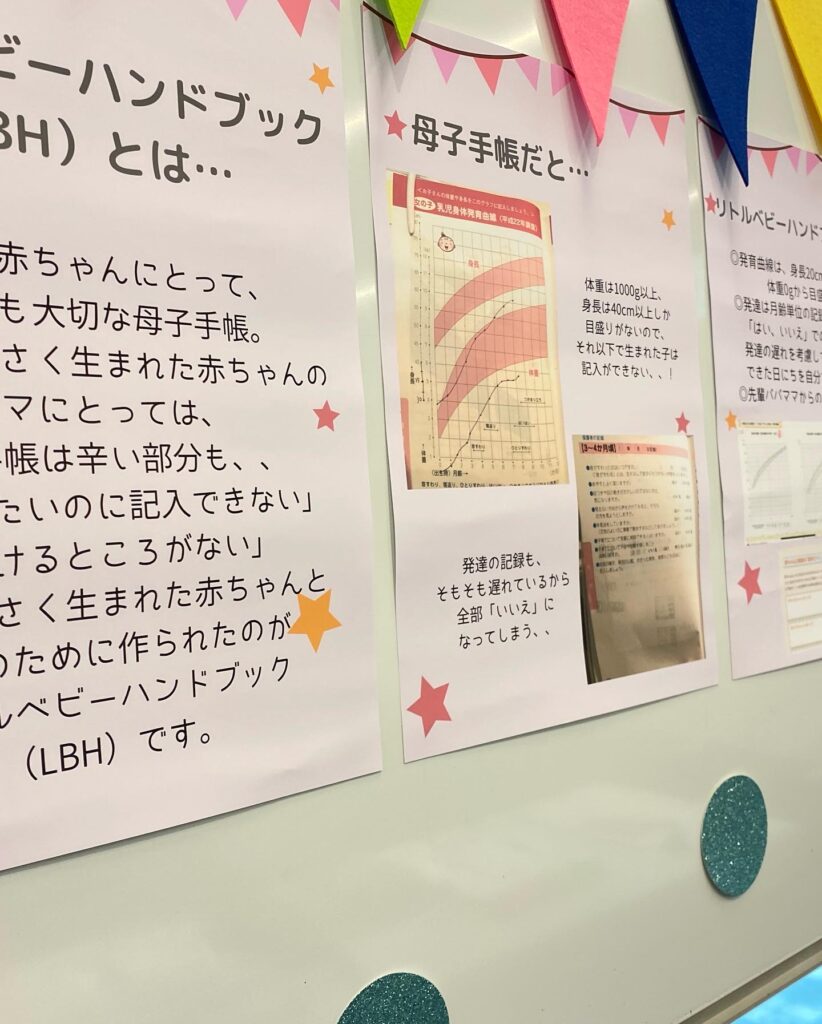 ビーハンドブック
BH）とは…
赤ちゃんにとって、
も大切な母子手帳。
さく生まれた赤ちゃんの
マにとっては、
手帳は辛い部分も、、
たいのに記入できない」
けるところがない」
さく生まれた赤ちゃんと
のために作られたのが
ルベビーハンドブック
（LBH）です。
母子手帳だと…
女の子 乳児身体発育曲線（平成22年調査）
身長
体重
体重は1000g以上、
身長は40cm以上しか
目盛りがないので、
それ以下で生まれた子は
記入ができない、、！
【3～4か月頃】
発達の記録も、
そもそも遅れているから
全部「いいえ」に
なってしまう、、
リトルベビーハンド
◎発育曲線は、身長20cm
体重0gから目盛
◎発達は月齢単位の記録
「はい、いいえ」での
発達の遅れを考慮して
できた日にちを自分
◎先輩パパママからの